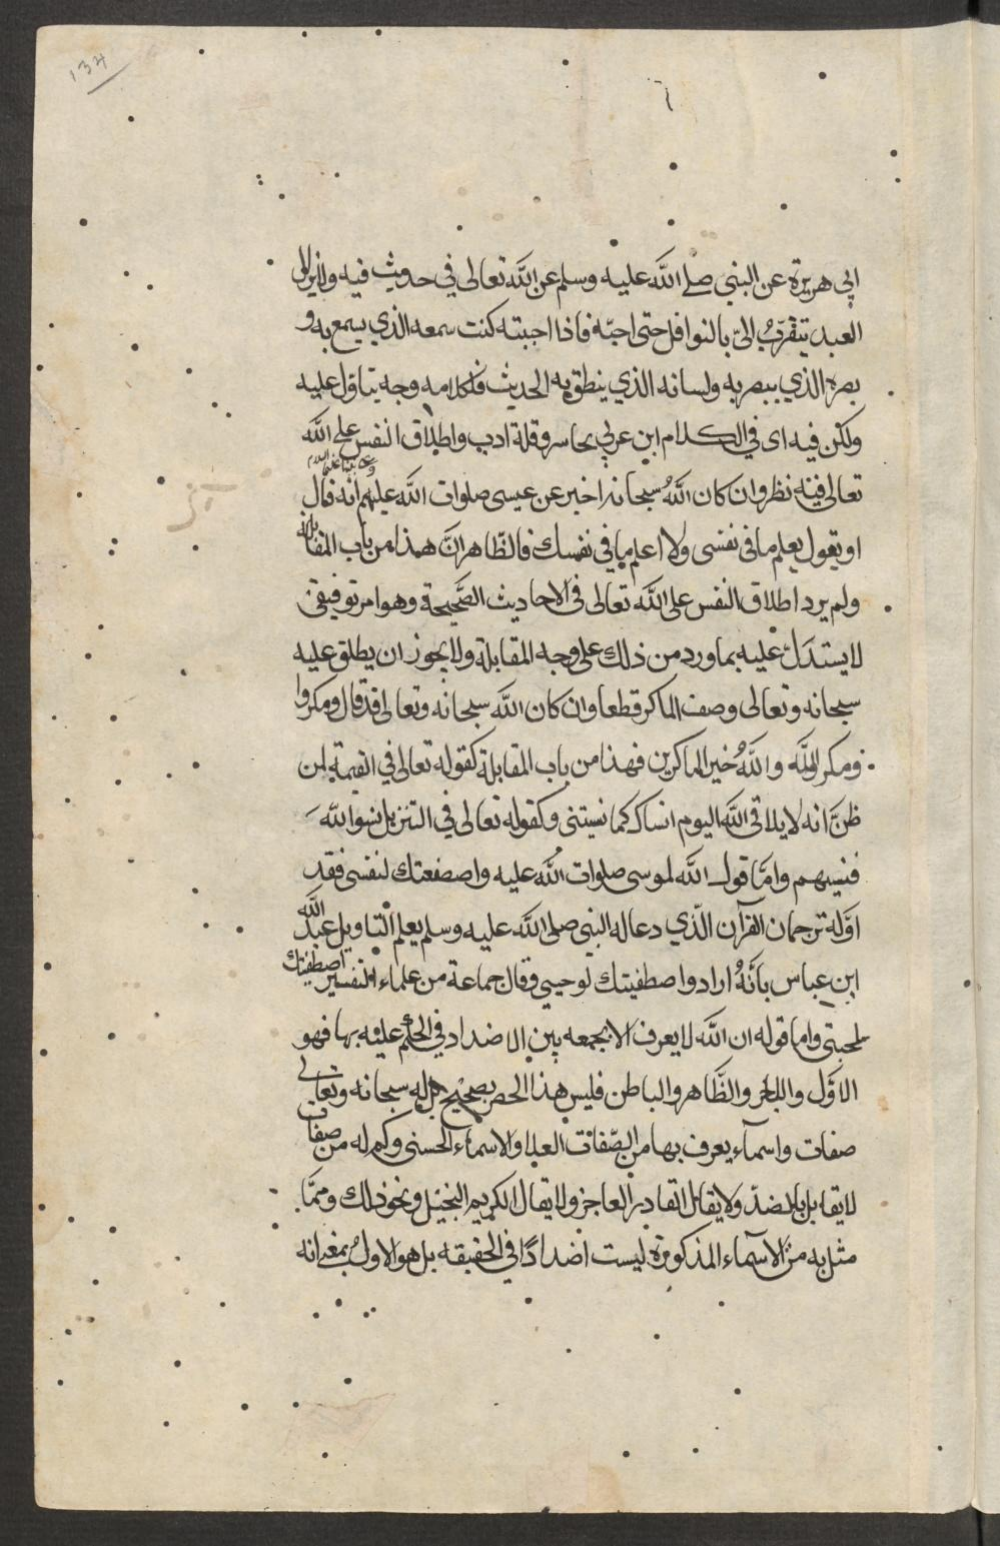 134
ابي هريرة عن النبي صلى الله عليه وسلم عن الله تعالى في حديث فيه ولا يزال
العبد يتقرّبُ اليّ بالنوافل حتى احبّه فاذا احببته كنت سمعه الذي يسمع به و
بصره الذي يبصر به ولسانه الذي ينطق به الحديث فلكلامه وجه يتاول عليه
ولكن فيه اى في الكلام ابن عربي تجاسر وقلة ادب واطلاق النفس على الله
تعالى فيه نظر وان كان اللهُ سبحانه اخبر عن عيسى صلوات الله عليهم انه قال
او يقول يعلم ما فى نفسى ولا اعلم ما في نفسك فالظّاهر انَّ هذا من باب المقابلة
ولم يرد اطلاق النفس على الله تعالى فى الاحاديث الصَّحيحة وهو امر توفيقى
لا يستدلّ عليه بما ورد من ذلك على وجه المقابلة ولا يجوز ان يطلق عليه
سبحانه وتعالى وصف الماكر قطعا وان كان الله سبحانه وتعالى قد قال ومكروا
ومكر الله واللهُ خير الماكرين فهذا من باب المقابلة كقوله تعالى في القيمة لمن
ظنَّ انه لا يلاقى الله اليوم انساك كما نسيتنى وكقوله تعالى في التنزيل نسوا الله
فنسيهم وامّا قول الله لموسى صلوات الله عليه واصطنعتك لنفسى فقد
اوّله ترجمان القرآن الّذي دعا له النبي صلى الله عليه وسلم يعلم التاويل عبد الله
ابن عباس بانّهُ اراد واصطفيتك لوحيي وقال جماعة من علماء التفسير اصطفيتك
لمحبتى واما قوله ان الله لا يعرف الا بجمعه بين الاضداد في الحكم عليه بها فهو
الاوّل والاخر والظّاهر والباطن فليس هذا الحصر بصحيح بل له سبحانه وتعالى
صفات واسمآء يعرف بها من الصّفات العلا والاسمآء الحسنى وكم له من صفات
لا يقابل بالضدّ ولا يقال القادر العاجز ولا يقال الكريم البخيل ونحو ذلك وممّا
مثل به من الاسماء المذكورة ليست اضدادًا في الحقيقه بل هو الاول بمعنى انه